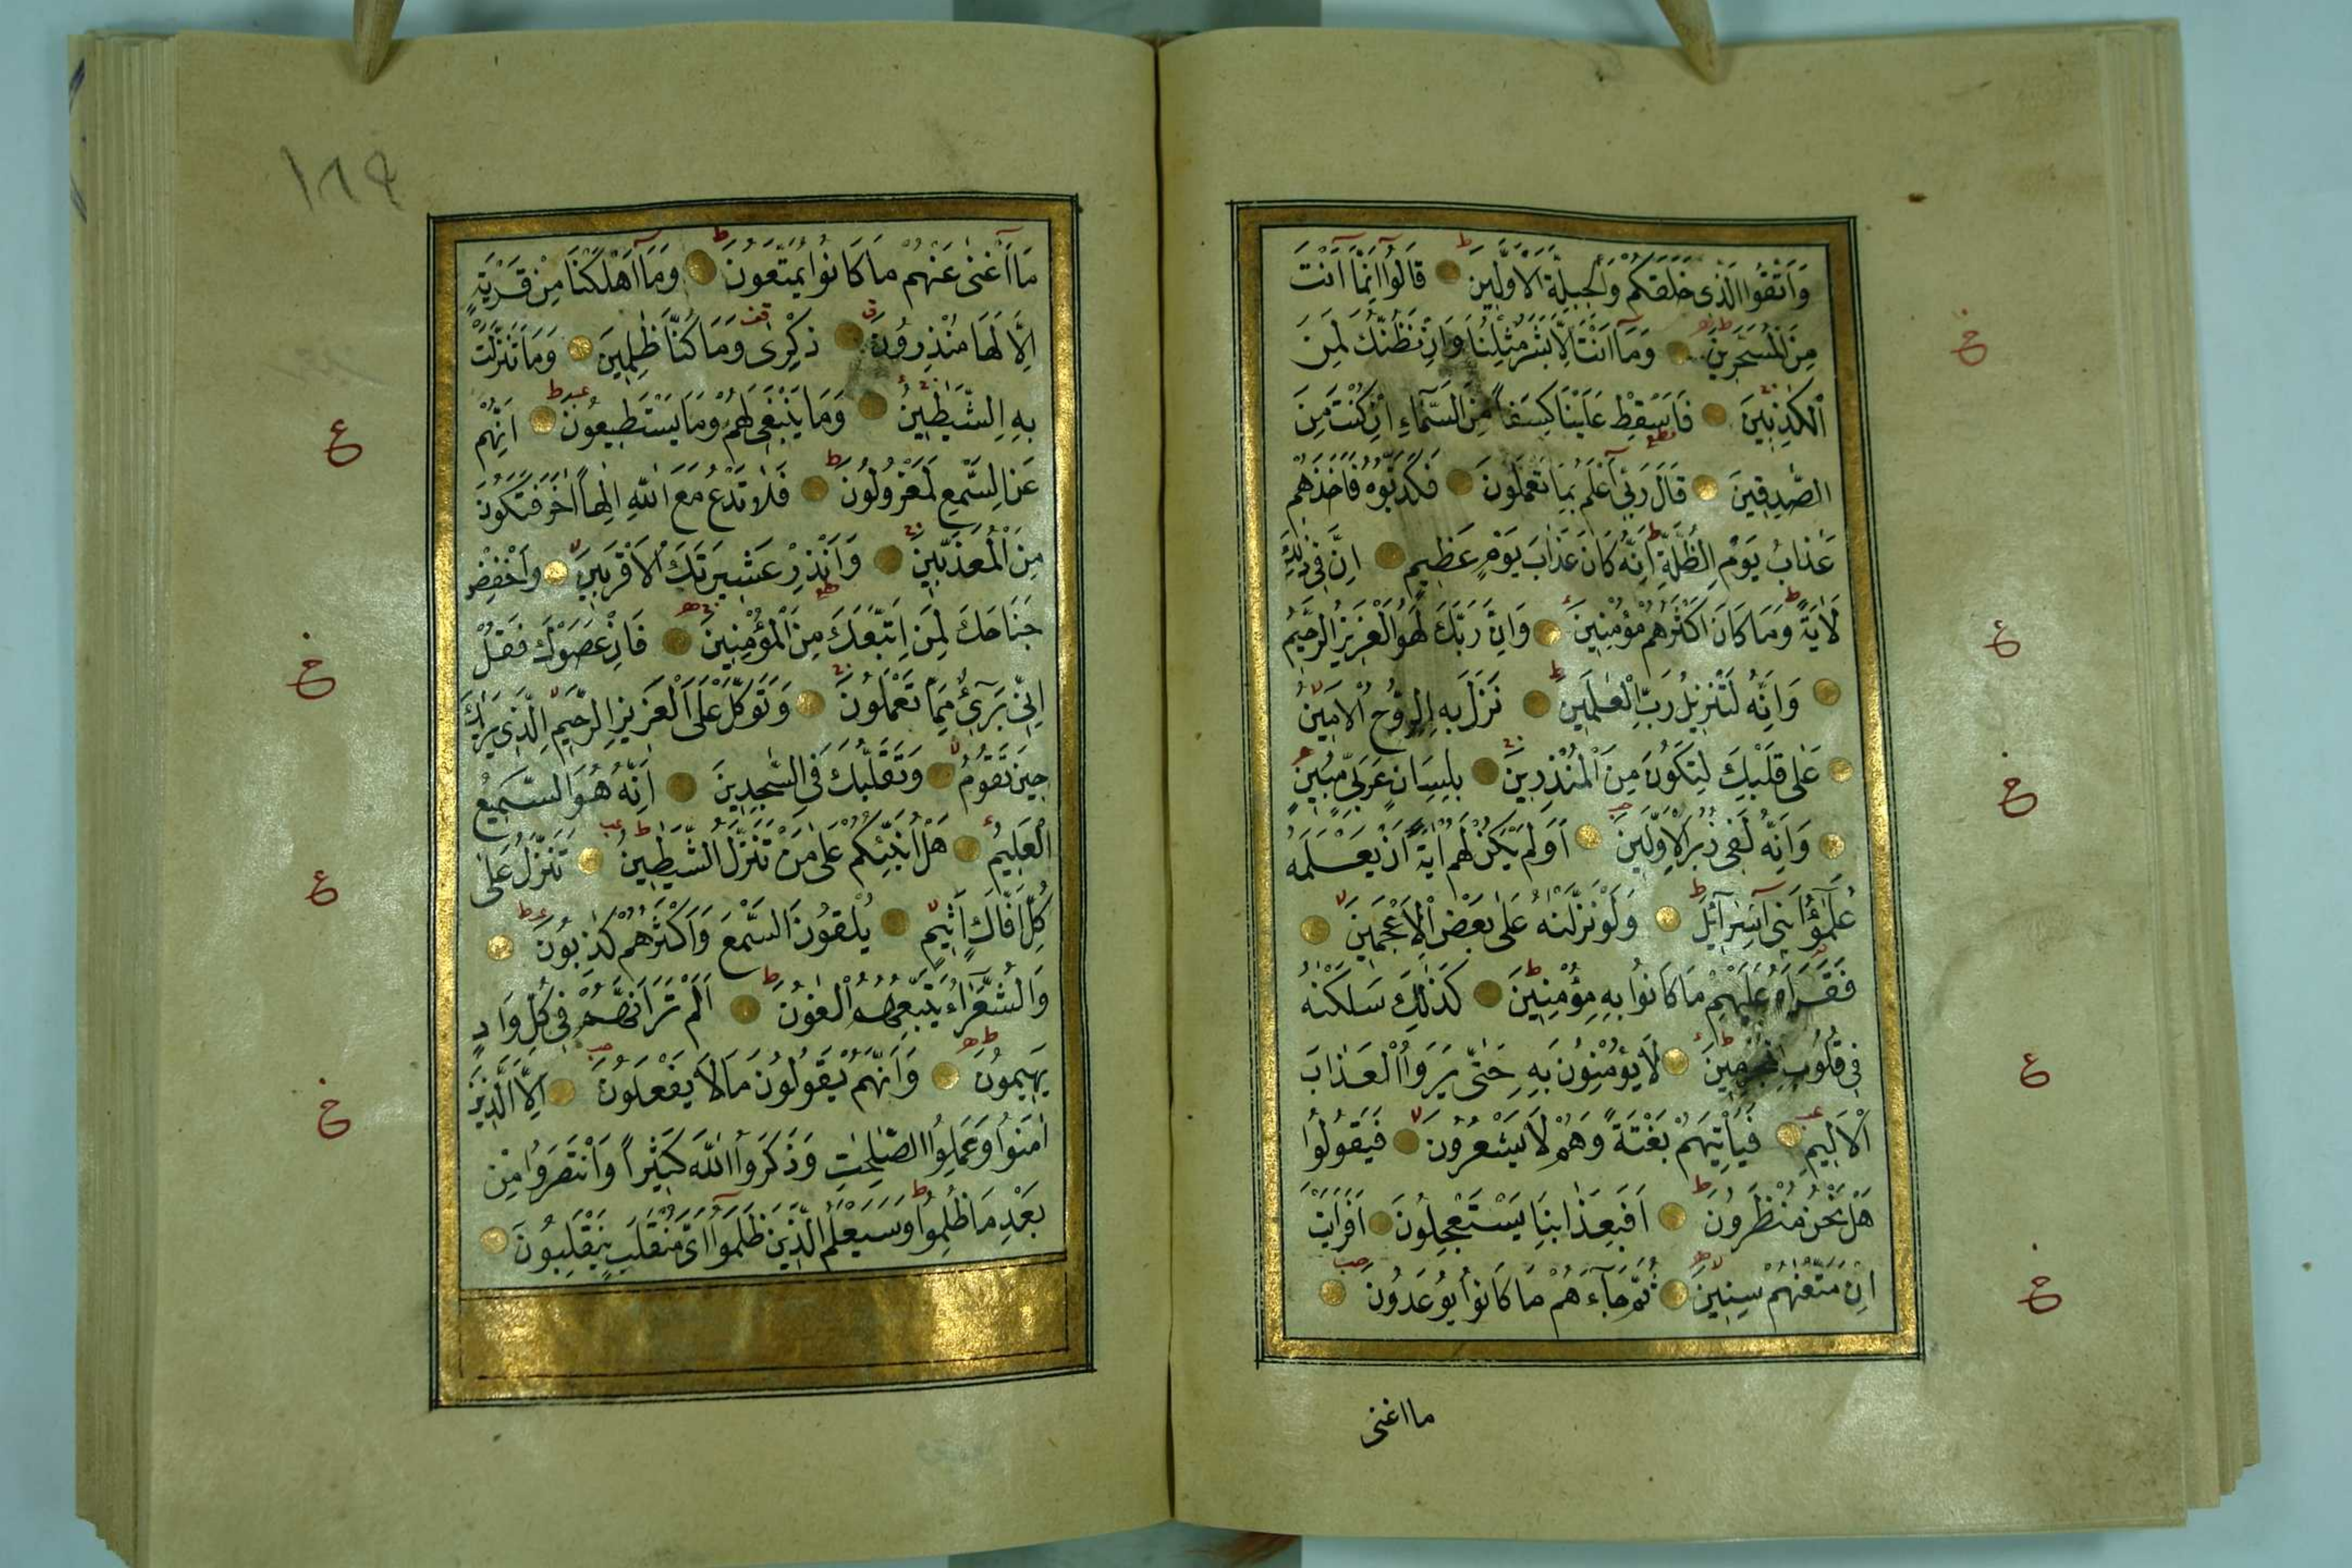 وَاتَّقُوا الَّذى خَلَقَكُمْ وَالْجِبِلَّةَ الْاَوَّلينَ قَالُوا اِنَّمَا اَنْتَ
مِنَ الْمُسَحَّرينَ وَمَا اَنْتَ اِلَّا بَشَرٌ مِثْلُنَا وَاِنْ نَظُنُّكَ لَمِنَ
الْكٰذِبينَ فَاَسْقِطْ عَلَيْنَا كِسَفاً مِنَ السَّمَاءِ اِنْ كُنْتَ مِنَ
الصّٰدِقينَ قَالَ رَبّى اَعْلَمُ بِمَا تَعْمَلُونَ فَكَذَّبُوهُ فَاَخَذَهُمْ
عَذَابُ يَوْمِ الظُّلَّةِ اِنَّهُ كَانَ عَذَابَ يَوْمٍ عَظيمٍ اِنَّ فى ذٰلِكَ
لَاٰيَةً وَمَا كَانَ اَكْثَرُهُمْ مُؤْمِنينَ وَاِنَّ رَبَّكَ لَهُوَ الْعَزيزُ الرَّحيمُ
وَاِنَّهُ لَتَنْزيلُ رَبِّ الْعٰلَمينَ نَزَلَ بِهِ الرُّوحُ الْاَمينُ
عَلٰى قَلْبِكَ لِتَكُونَ مِنَ الْمُنْذِرينَ بِلِسَانٍ عَرَبِىٍّ مُبينٍ
وَاِنَّهُ لَفى زُبُرِ الْاَوَّلينَ اَوَلَمْ يَكُنْ لَهُمْ اٰيَةً اَنْ يَعْلَمَهُ
عُلَمٰؤُا بَنى اِسْرَائلَ وَلَوْ نَزَّلْنٰهُ عَلٰى بَعْضِ الْاَعْجَمينَ
فَقَرَاَهُ عَلَيْهِمْ مَا كَانُوا بِهِ مُؤْمِنينَ كَذٰلِكَ سَلَكْنٰهُ
فى قُلُوبِ الْمُجْرِمينَ لَا يُؤْمِنُونَ بِهِ حَتّٰى يَرَوُا الْعَذَابَ
الْاَليمَ فَيَأْتِيَهُمْ بَغْتَةً وَهُمْ لَا يَشْعُرُونَ فَيَقُولُوا
هَلْ نَحْنُ مُنْظَرُونَ اَفَبِعَذَابِنَا يَسْتَعْجِلُونَ اَفَرَاَيْتَ
اِنْ مَتَّعْنٰهُمْ سِنينَ ثُمَّ جَاءَهُمْ مَا كَانُوا يُوعَدُونَ
ما اغنى
١٨٩
مَا اَغْنٰى عَنْهُمْ مَا كَانُوا يُمَتَّعُونَ وَمَا اَهْلَكْنَا مِنْ قَرْيَةٍ
اِلَّا لَهَا مُنْذِرُونَ ذِكْرٰى وَمَا كُنَّا ظٰلِمينَ وَمَا تَنَزَّلَتْ
بِهِ الشَّيٰطينُ وَمَا يَنْبَغى لَهُمْ وَمَا يَسْتَطيعُونَ اِنَّهُمْ
عَنِ السَّمْعِ لَمَعْزُولُونَ فَلَا تَدْعُ مَعَ اللّٰهِ اِلٰهاً اٰخَرَ فَتَكُونَ
مِنَ الْمُعَذَّبينَ وَاَنْذِرْ عَشيرَتَكَ الْاَقْرَبينَ وَاخْفِضْ
جَنَاحَكَ لِمَنِ اتَّبَعَكَ مِنَ الْمُؤْمِنينَ فَاِنْ عَصَوْكَ فَقُلْ
اِنّى بَرىءٌ مِمَّا تَعْمَلُونَ وَتَوَكَّلْ عَلَى الْعَزيزِ الرَّحيمِ الَّذى يَرٰيكَ
حينَ تَقُومُ وَتَقَلُّبَكَ فِى السّٰجِدينَ اِنَّهُ هُوَ السَّميعُ
الْعَليمُ هَلْ اُنَبِّئُكُمْ عَلٰى مَنْ تَنَزَّلُ الشَّيٰطينُ تَنَزَّلُ عَلٰى
كُلِّ اَفَّاكٍ اَثيمٍ يُلْقُونَ السَّمْعَ وَاَكْثَرُهُمْ كٰذِبُونَ
وَالشُّعَرَاءُ يَتَّبِعُهُمُ الْغٰوُنَ اَلَمْ تَرَ اَنَّهُمْ فى كُلِّ وَادٍ
يَهيمُونَ وَاَنَّهُمْ يَقُولُونَ مَا لَا يَفْعَلُونَ اِلَّا الَّذينَ
اٰمَنُوا وَعَمِلُوا الصّٰلِحٰتِ وَذَكَرُوا اللّٰهَ كَثيراً وَانْتَصَرُوا مِنْ
بَعْدِ مَا ظُلِمُوا وَسَيَعْلَمُ الَّذينَ ظَلَمُوا اَىَّ مُنْقَلَبٍ يَنْقَلِبُونَ